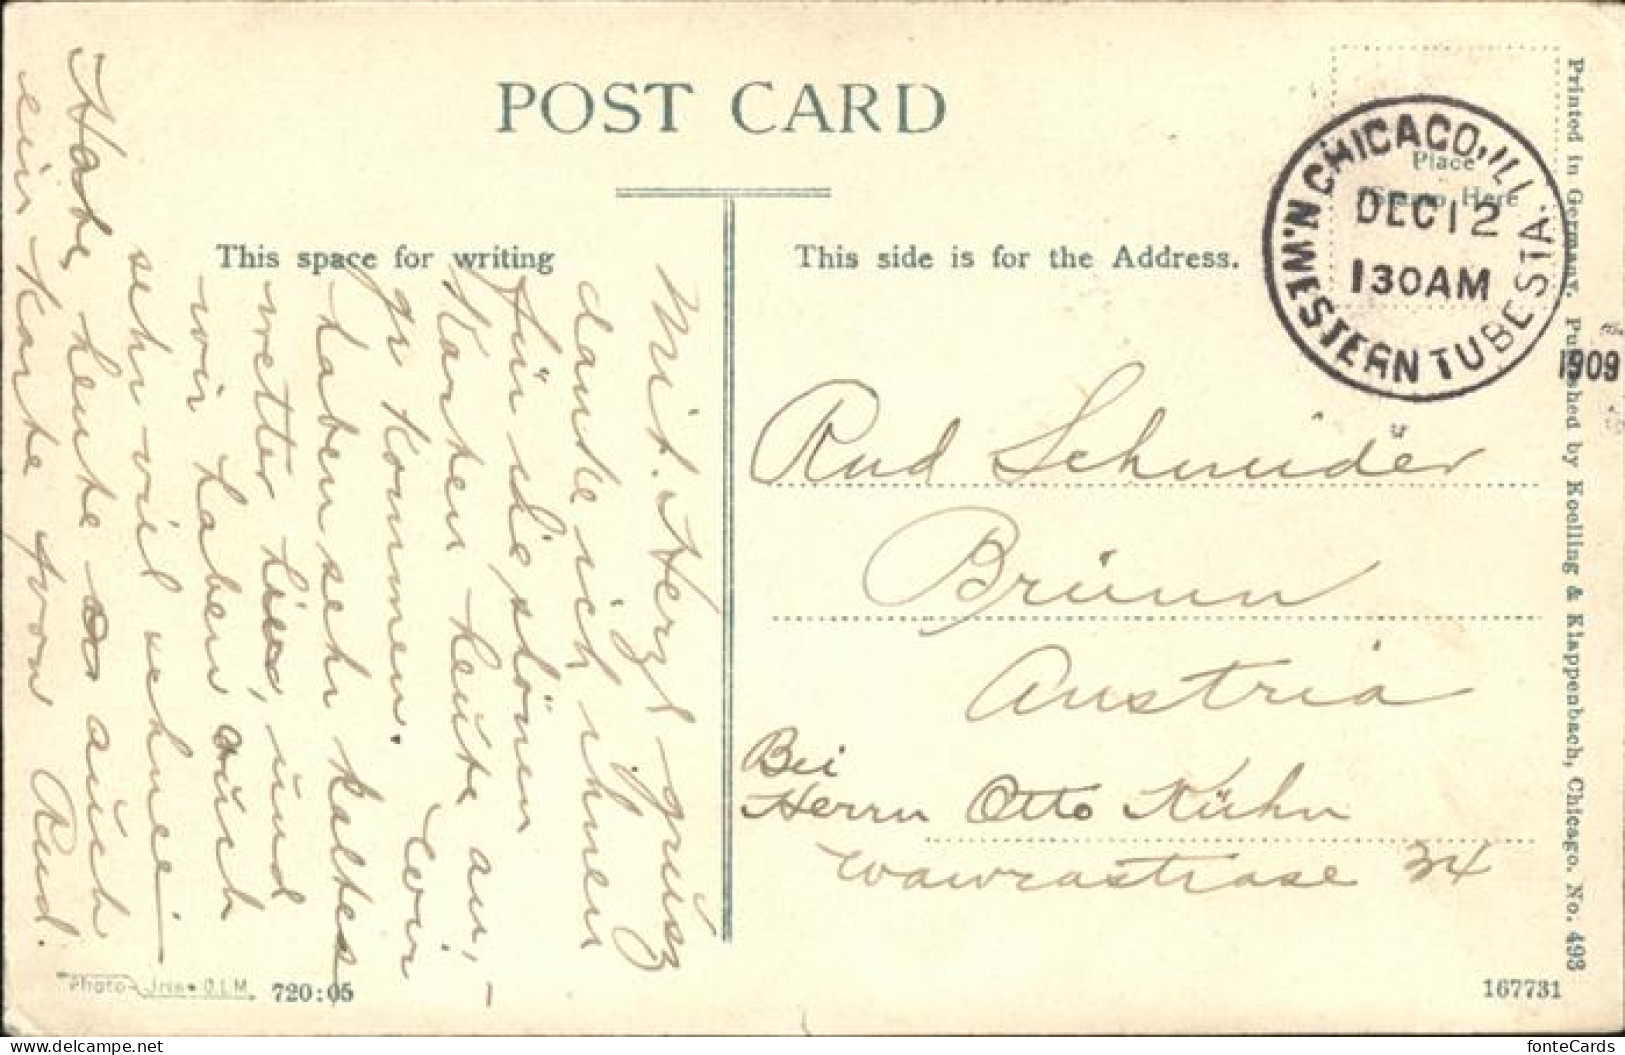 POST CARD
This space for writing
This side is for the Address.
Place
Stamp Here
CHICAGO, ILL
N.WESTERN TUBE STA.
DEC 12
1 30 AM
1909
Mit. Herzl grüsz
danke ich ihnen
für die slönen
Karten heute an,
gekommen. wir
haben sehr kaltes
wetter hier, und
wir haben auch
sehr viel schnei
Habe heute auch
ein Karte von Rud.
Rud Schneider
Brünn
Austria
Bei
Herrn Otto Kühn
Wawrastrase 34
Printed in Germany. Published by Koelling & Klappenbach, Chicago. No. 493
Photo-Iris O.L.M. 720:05
167731
fonteCards